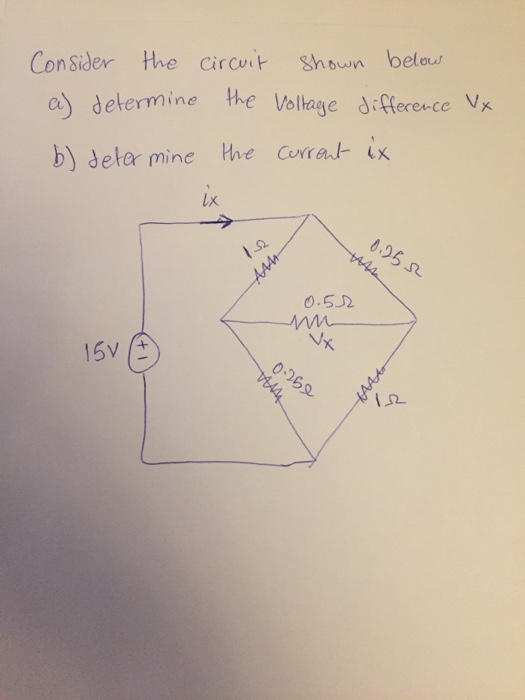 Consider the circuit shown below
a) determine the Voltage difference Vx
b) determine the current ix
ix
1Ω
0.25Ω
0.5Ω
Vx
15V
+
-
0.25Ω
1Ω